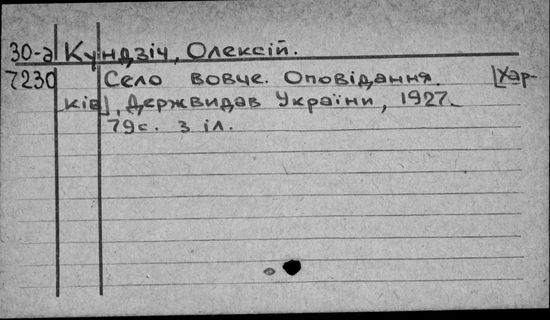 30-а Кундзіч, Олексій.
7230 Село вовче. Оповідання. [Хар-
ків], Держвидав України, 1927.
79с. з іл.